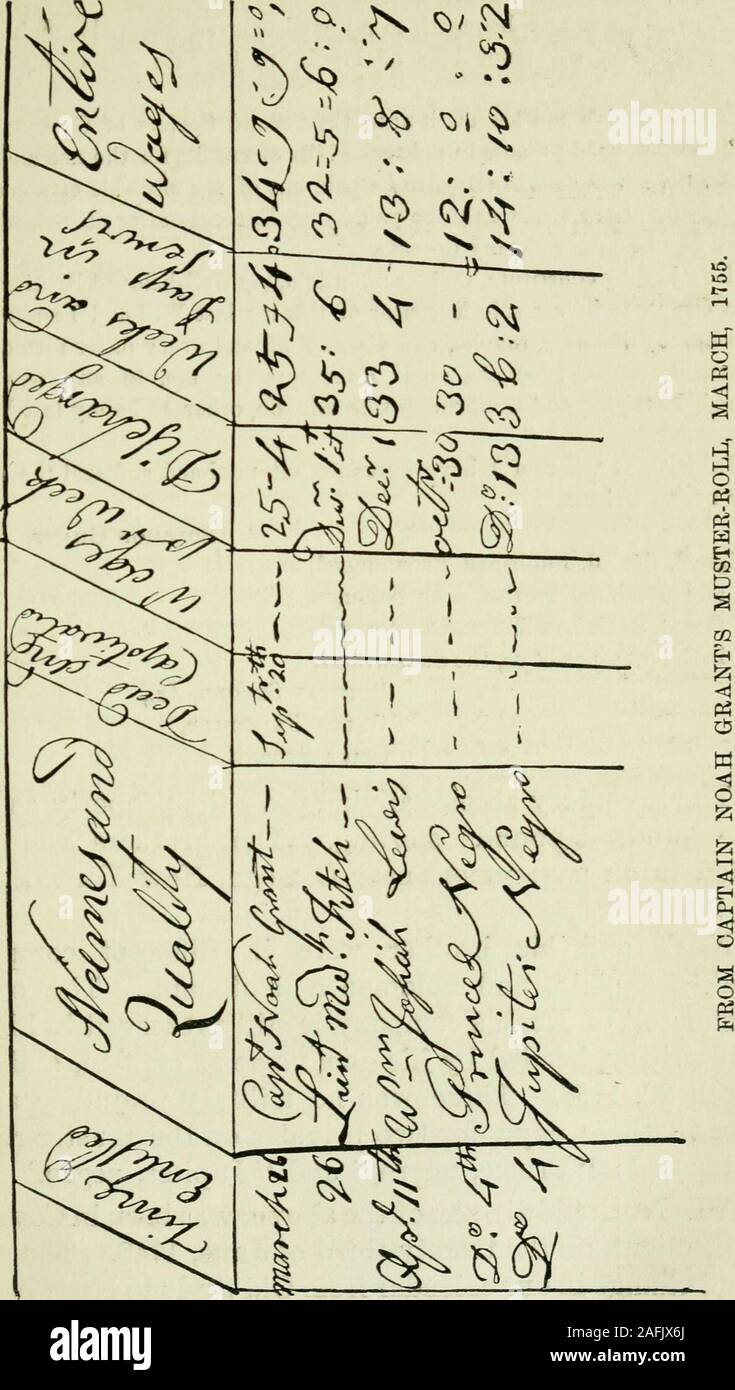 Time Enlysted | Neames and Quality | Dead and Captivated | Wages pr Week | Discharged | Weeks and Days in Servis | Entire Wages
march 26 | Capt Noah Grant -- | Sept. 20th | --- | 25-4 | 25 = 4 | 34-9:9=0
26 | Lieut Med.h Fitch -- | ---- | ---- | Decr. 1st | 35: 6 | 32=5=6:0
Apr. 11th | Wm Josiah Lewis | -- | -- | Decr. 1 | 33 4 | 13:8:7
Do 4th | Prince Negro | -- | -- | octr 30 | 30 - | 12:0.0
Do 4 | Jupiter Negro | -- | -- | Do: 13 | 36:2 | 14:10:
FROM CAPTAIN NOAH GRANT'S MUSTER-ROLL, MARCH, 1755.
alamy
Image ID: 2AFJX6J
www.alamy.com